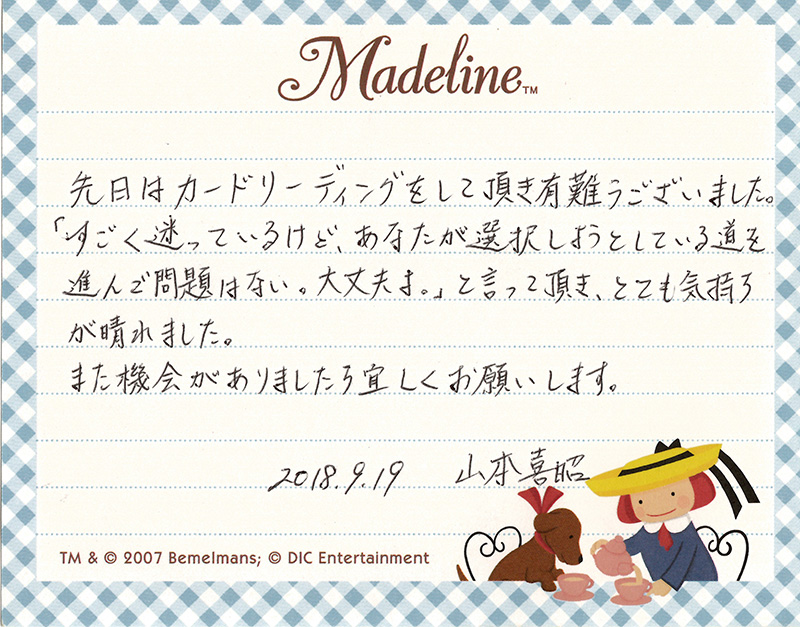 Madeline™
先日はカードリーディングをして頂き有難うございました。
「すごく迷っているけど、あなたが選択しようとしている道を
進んで問題はない。大丈夫よ。」と言って頂き、とても気持ち
が晴れました。
また機会がありましたら宜しくお願いします。
2018.9.19 山本喜昭
TM & © 2007 Bemelmans; © DIC Entertainment